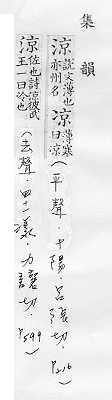 集韻
涼 說文薄也亦州名 涼 薄寒曰涼
(平聲.十陽.呂張切.P.216)
涼 佐也詩涼彼武王一曰冷也
(去聲.四十一漾.力讓切.P.599)